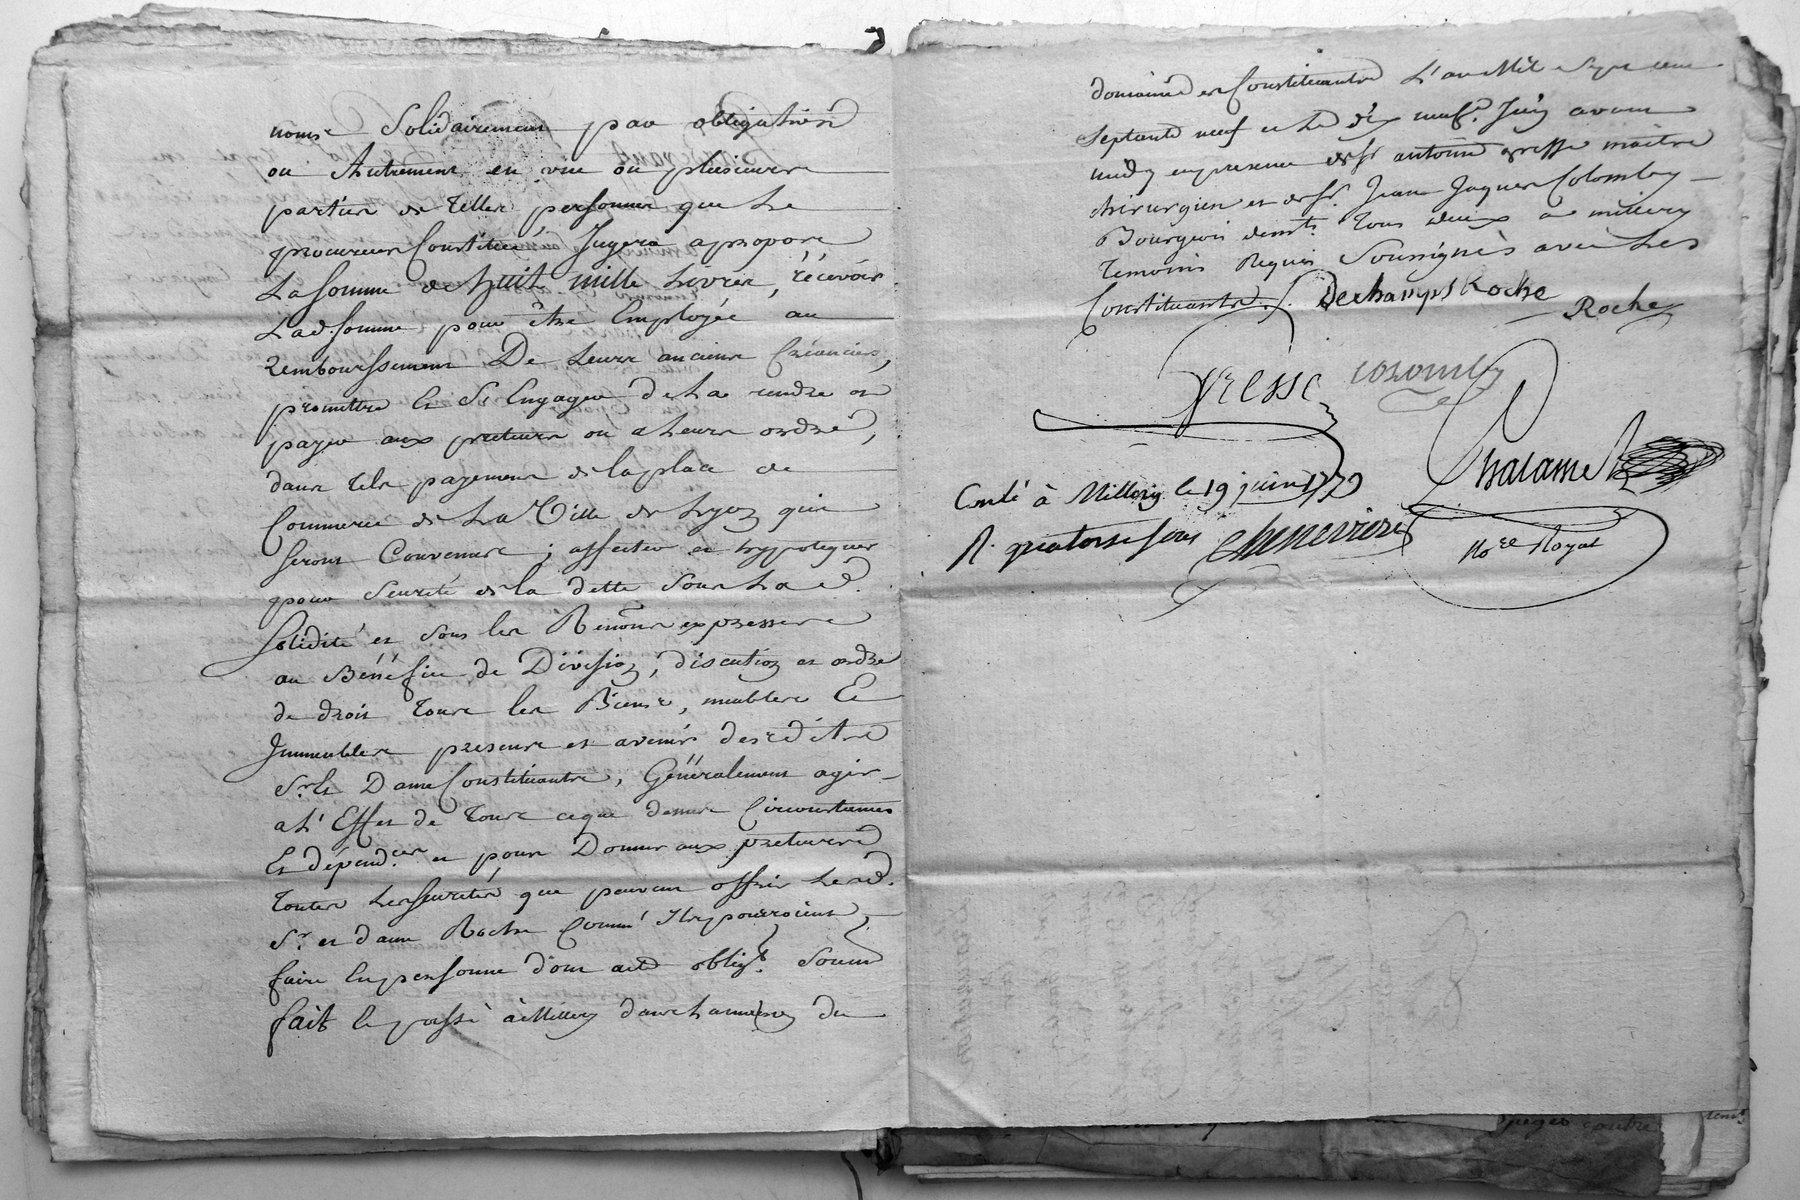 noms Solidairement par obligations
ou Autrement en une ou plusieurs
parties de telles personnes que le
procureur Constitué Jugera apropos
La somme de huit mille Livres, récevoir
Lad. somme pour être Employée au
remboursement De Leurs anciens Créanciers,
promettre Et S'Engager de La rendre ou
payer aux preteurs ou a Leurs ordre,
dans tels payemens de la place de
Commerce de La Ville de Lyon qui
seront Convenus ; affecter et hypotequer
pour Seureté de la dette sous La d.
Solidité et sous les Renon^ons expresses
au Bénéfice de Division, discution et ordre
de droit tous les Biens, meubles Et
Immeubles presens et avenir desdits
Sr. Et Dame Constituants, Généralement agir
a L'Effet de tout ce que dessus Circonstances
Et dépend.ces et pour Donner aux preteurs
toutes Les seuretés que peuvent offrir Lesd.
Sr. et dame Roche Comme Ils pourroient
faire En personne dont acte oblig.t soum
fait Et passé à Millery dans La maison du
domaine des Constituants L'an Mil Sept cent
Septante neuf et Le dix neuf.e Juin avant
midy en presence de Sr. antoine gresse maître
chirurgien et de Sr. Jean Jaques Colomby
Bourgeois demt. tous deux a millery
temoins Requis Soussignés avec Les
Constituants. Dechamps Roche Roche
Gresse colomby
Chalamel
Conlé à Millery le 19 juin 1779
R. quatorze sous chenevieres
No.re Royal